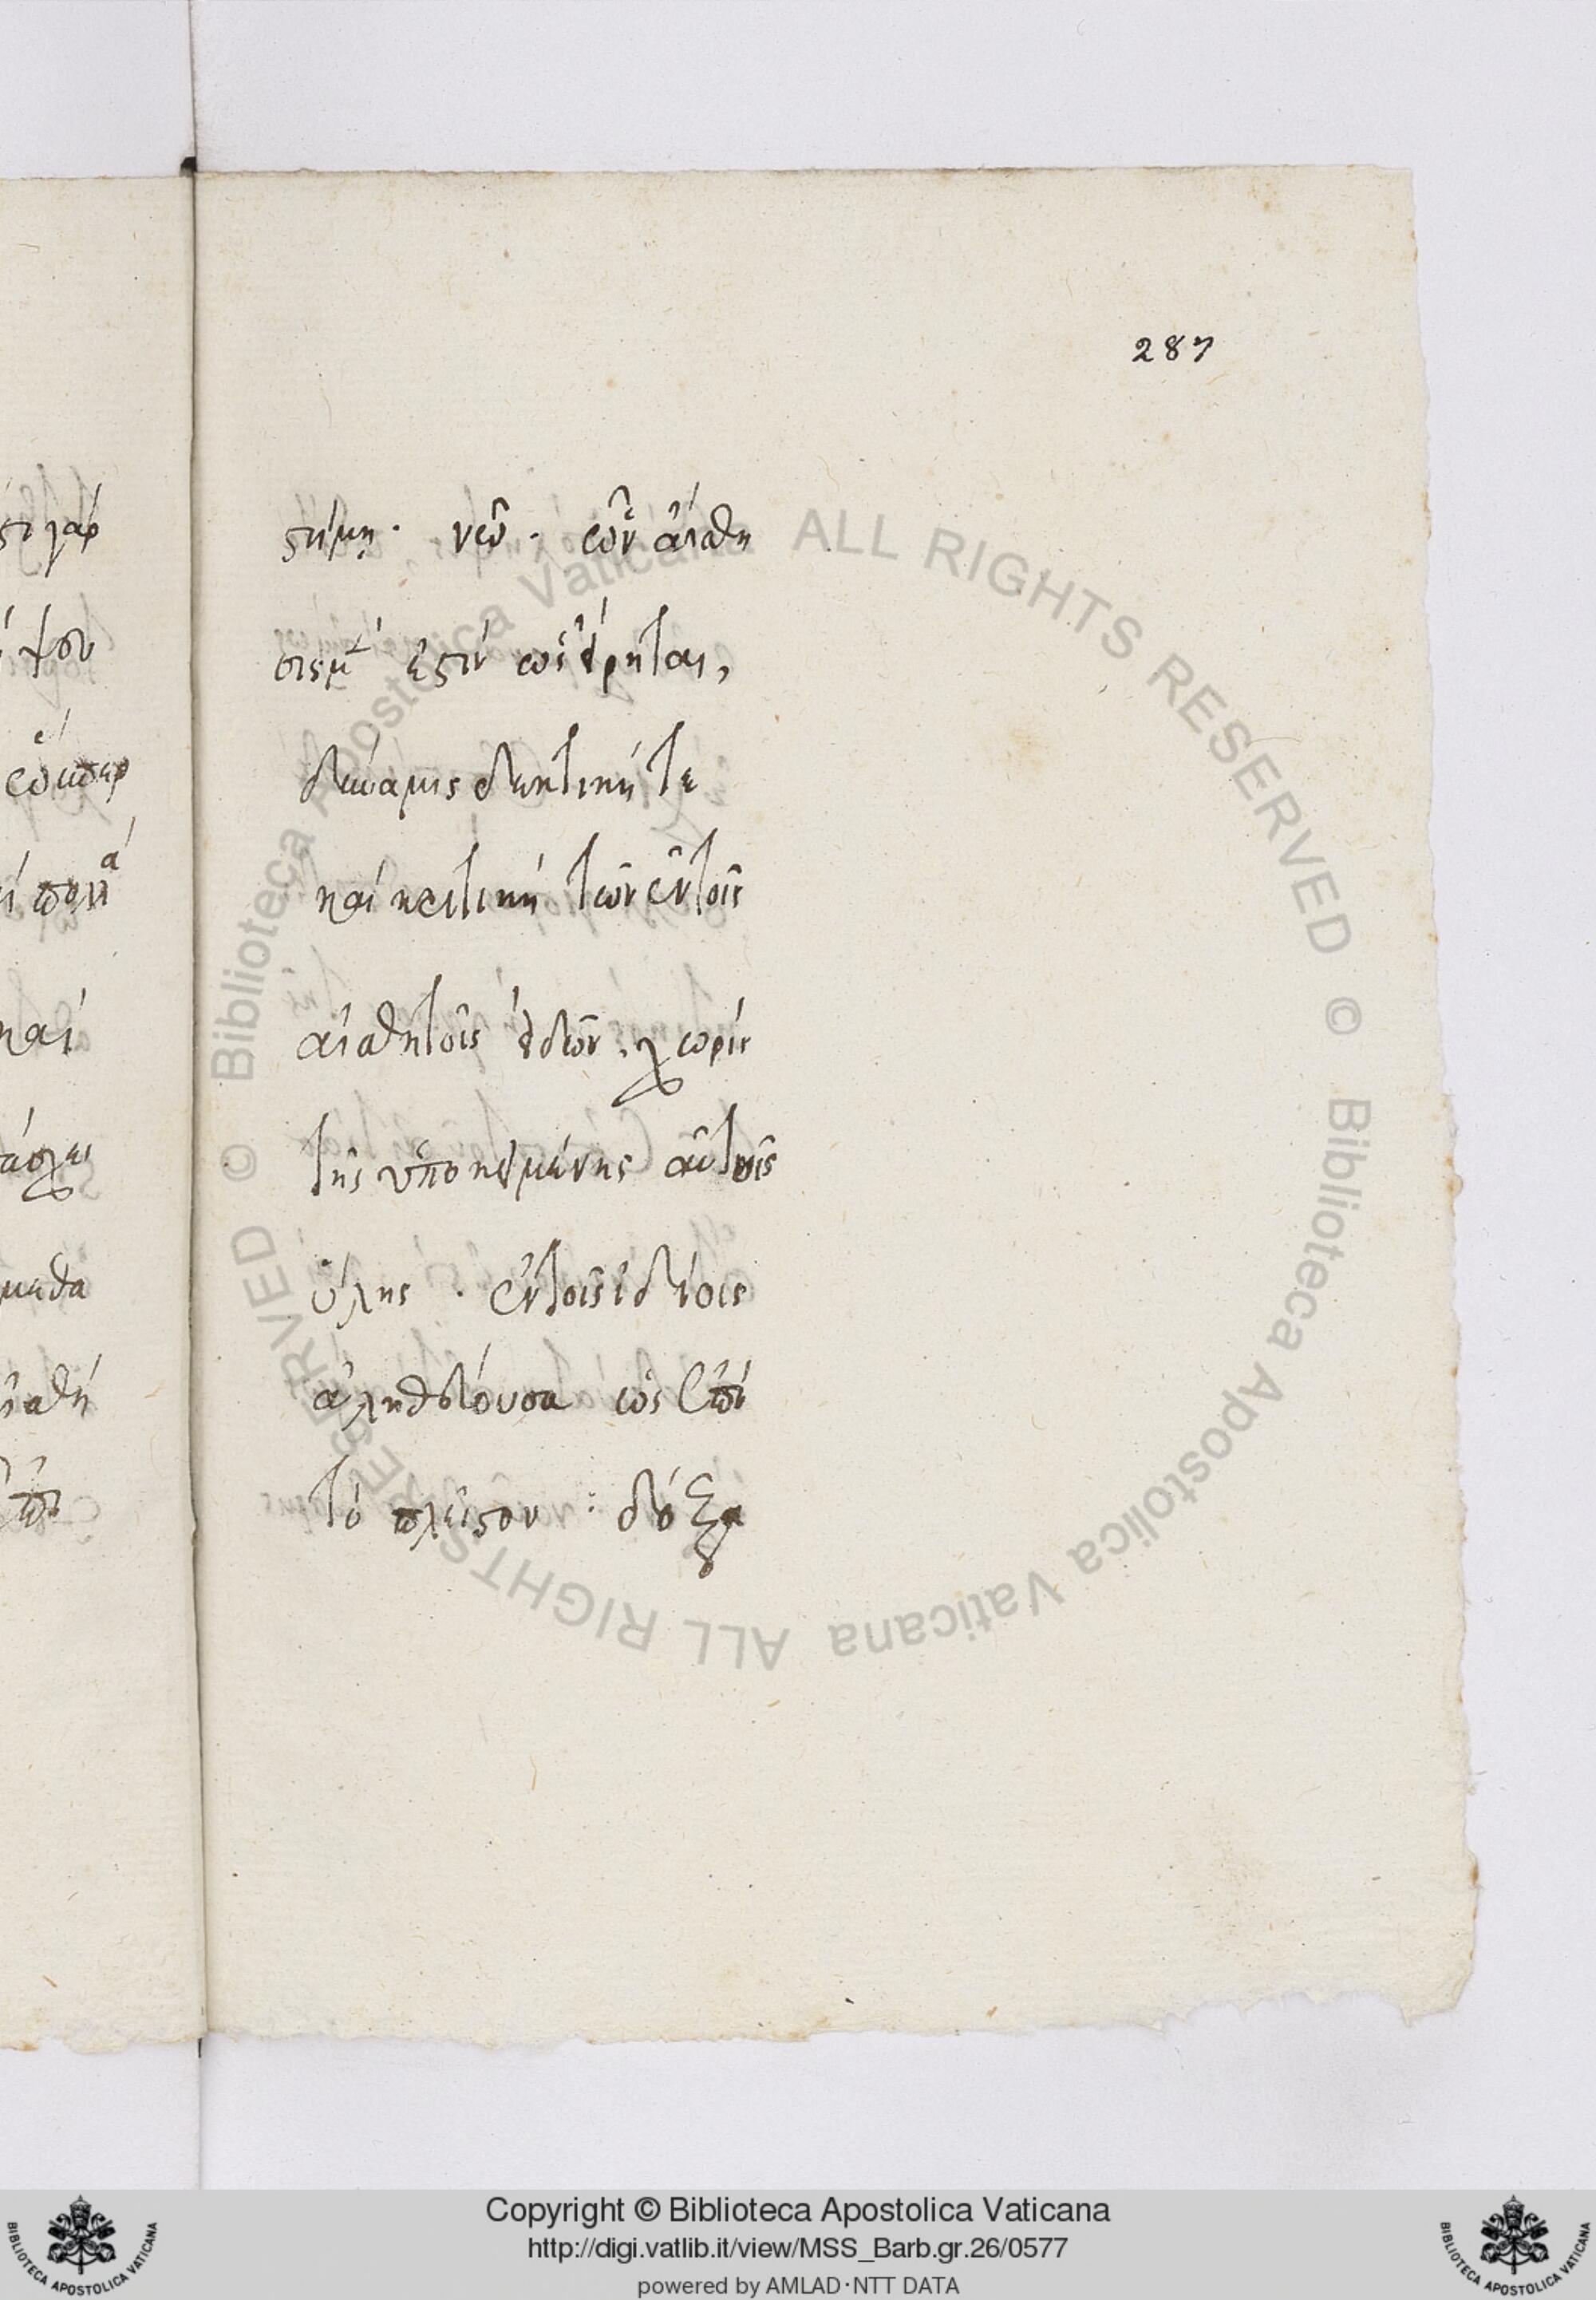 287
στήμη· νῷ· ὧν αἴσθη
σις μὲν ἐστὶν ὡς εἴρηται,
δύναμις δεκτική τε
καὶ κριτικὴ τῶν ἐν τοῖς
αἰσθητοῖς εἰδῶν. χωρὶς
τῆς ὑποκειμένης αὐτοῖς
ὕλης· ἐν τοῖς ἰδίοις
ἀληθεύουσα ὡς ἐπὶ
τὸ πλεῖστον : δόξα
ALL RIGHTS RESERVED © Biblioteca Apostolica Vaticana ALL RIGHTS RESERVED © Biblioteca Apostolica Vaticana
Copyright © Biblioteca Apostolica Vaticana
http://digi.vatlib.it/view/MSS_Barb.gr.26/0577
powered by AMLAD·NTT DATA
BIBLIOTECA APOSTOLICA VATICANA
BIBLIOTECA APOSTOLICA VATICANA